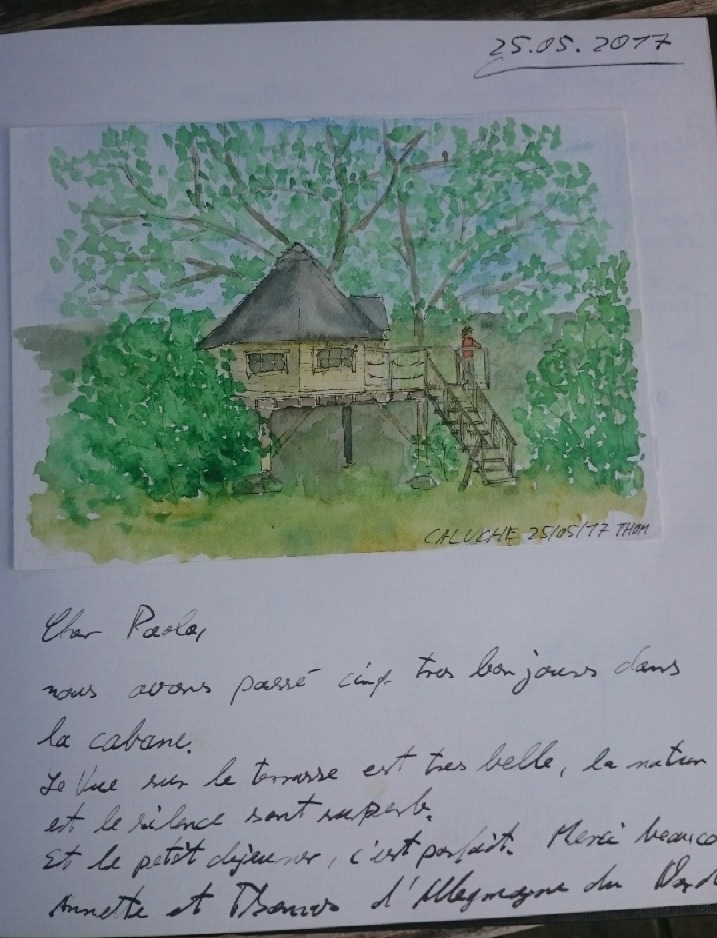 25.05.2017
CALUCHE 25/05/17 THOM
Cher Paola,
nous avons passé cinq tres bon jours dans
la cabane.
Le Vue sur le terrasse est tres belle, la natur
est le silence sont superb.
Et le petit dejeuner, c'est parfait. Merci beauco
Annette et Thomas d'Allemagne du Nord